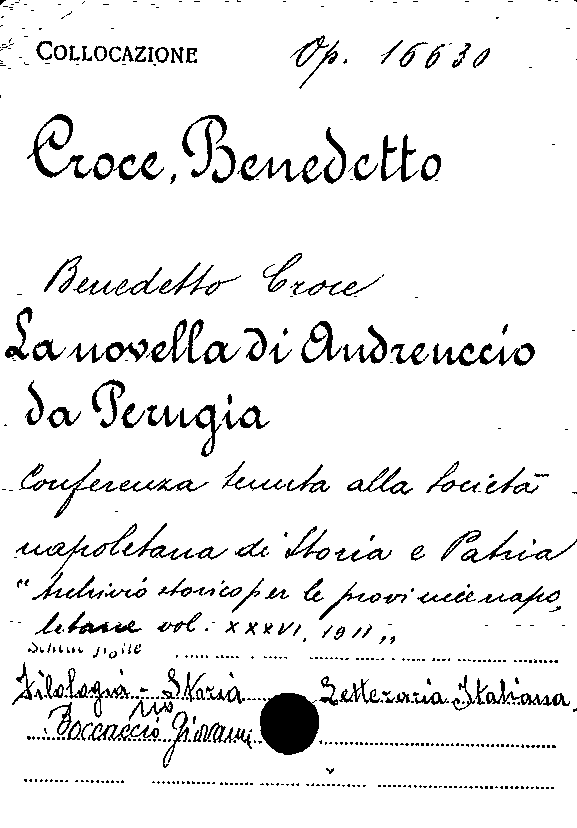 COLLOCAZIONE Op. 16630
Croce, Benedetto
Benedetto Croce
La novella di Andreuccio
da Perugia
Conferenza tenuta alla Società
napoletana di Storia e Patria
"Archivio storico per le provincie napo,
letane vol. XXXVI, 1911„
Filologia - Storia Letteraria Italiana
Boccaccio Giovanni